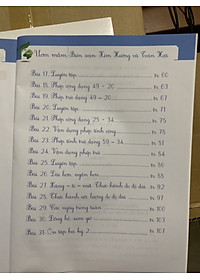 Ươm mầm. Biên soạn Kim Hường và Trần Hải
Bài 17. Luyện tập tr 60
Bài 18. Phép cộng dạng 49 - 20 tr 63
Bài 19. Phép trừ dạng 49 - 20 tr 67
Bài 20. Luyện tập tr 71
Bài 21. Phép cộng dạng 25 - 34 tr
Bài 22. Vận dụng phép tính cộng tr 75
Bài 23. Phép tính trừ dạng 59 - 34 tr 51
Bài 24. Vận dụng phép trừ tr 54
Bài 25. Luyện tập tr 56
Bài 26. Dài hơn, ngắn hơn tr 88
Bài 27. Xăng - ti - mét. Thực hành đo độ dài tr 92
Bài 28. Thực hành ước lượng đo độ dài tr 97
Bài 29. Các ngày trong tuần tr 100
Bài 30. Đồng hồ, xem giờ tr 103
Bài 31. Ôn tập học kỳ 2 tr 101